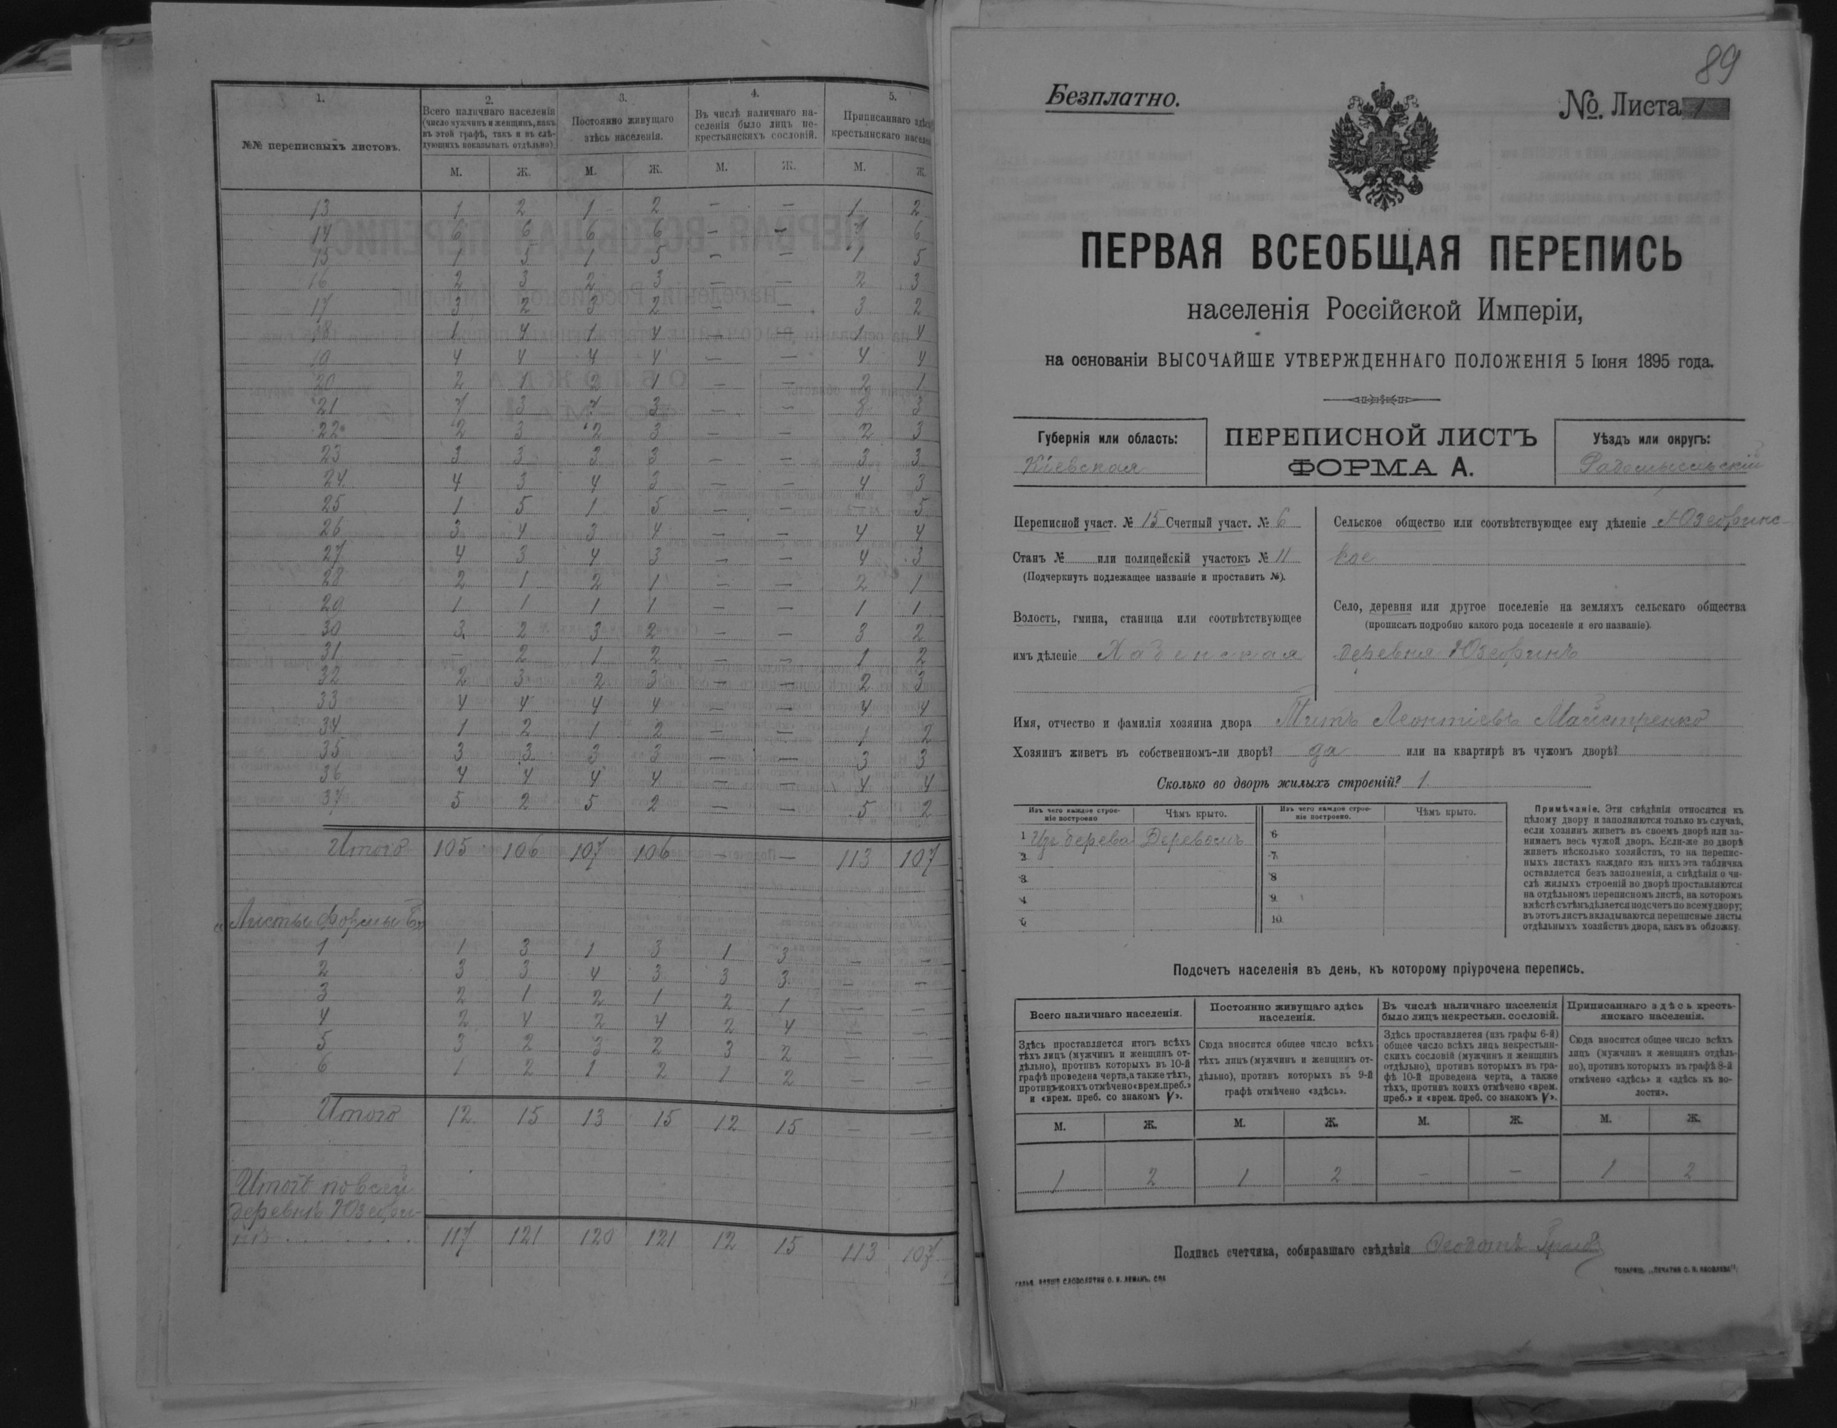 1. 2. 3. 4. 5.
№№ переписныхъ листовъ. Всего наличнаго населенія (число мужчинъ и женщинъ, какъ въ этой графѣ, такъ и въ слѣдующихъ показывать отдѣльно) Постоянно живущаго здѣсь населенія. Въ числѣ наличнаго населенія было лицъ некрестьянскихъ сословій. Приписаннаго здѣсь крестьянскаго населенія
М. Ж. М. Ж. М. Ж. М. Ж.
13 1 2 1 2 — — 1 2
14 6 6 6 6 — — 6
15 1 5 1 5 — — 1 5
16 2 3 2 3 — — 2 3
17 3 2 3 2 — — 3 2
18 1 4 1 4 — — 1 4
19 4 4 4 4 — — 4 4
20 2 1 2 1 — — 2 1
21 3 3 — — 3
22 2 3 2 3 — — 2 3
23 3 3 3 3 — — 3 3
24 4 3 4 3 — — 4 3
25 1 5 1 5 — — 5
26 3 4 3 4 — — 4 4
27 4 3 4 3 — — 4 3
28 2 1 2 1 — — 2 1
29 1 1 1 1 — — 1 1
30 3 2 3 2 — — 3 2
31 — 2 1 2 — — 1 2
32 2 3 2 3 — — 2 3
33 4 4 4 4 — — 4 4
34 1 2 1 2 — — 1 2
35 3 3 3 3 — — 3 3
36 4 4 4 4 — — 4 4
37 5 2 5 2 — — 5 2
Итого 105 106 107 106 — — 113 107
Листы формы Б
1 1 3 1 3 1 3 — —
2 3 3 4 3 3 3 — —
3 2 1 2 1 2 1 — —
4 2 4 2 4 2 4 — —
5 3 2 3 2 3 2
6 1 2 1 2 1 2 — —
Итого 12 15 13 15 12 15 — —
Итого по всей
деревнѣ Юзефи-
нѣ 117 121 120 121 12 15 113 107
89
Безплатно.
№ Листа 1
ПЕРВАЯ ВСЕОБЩАЯ ПЕРЕПИСЬ
населенія Россійской Имперіи,
на основаніи ВЫСОЧАЙШЕ УТВЕРЖДЕННАГО ПОЛОЖЕНІЯ 5 Іюня 1895 года.
Губернія или область:
Кіевская
ПЕРЕПИСНОЙ ЛИСТЪ
ФОРМА А.
Уѣздъ или округъ:
Радомысльскій
Переписной участ. № 15 Счетный участ. № 6
Станъ № или полицейскій участокъ № 11
(Подчеркнуть подлежащее названіе и проставить №).
Волость, гмина, станица или соотвѣтствующее
имъ дѣленіе Хабенская
Сельское общество или соотвѣтствующее ему дѣленіе Юзефинс-
кое
Село, деревня или другое поселеніе на земляхъ сельскаго общества
(прописать подробно какого рода поселеніе и его названіе).
деревня Юзефинъ
Имя, отчество и фамилія хозяина двора Титъ Леонтіевъ Майстренко
Хозяинъ живетъ въ собственномъ-ли дворѣ? да или на квартирѣ въ чужомъ дворѣ?
Сколько во дворѣ жилыхъ строеній? 1
Изъ чего каждое строеніе построено Чѣмъ крыто. Изъ чего каждое строеніе построено. Чѣмъ крыто.
1 Изъ дерева Деревомъ 6
2 7.
3 8
4 9.
5 10.
Примѣчаніе. Эти свѣдѣнія относятся къ
цѣлому двору и заполняются только въ случаѣ,
если хозяинъ живетъ въ своемъ дворѣ или за-
нимаетъ весь чужой дворъ. Если-же во дворѣ
живетъ нѣсколько хозяйствъ, то на перепис-
ныхъ листахъ каждаго изъ нихъ эта табличка
оставляется безъ заполненія, а свѣдѣнія о чи-
слѣ жилыхъ строеній во дворѣ проставляются
на отдѣльномъ переписномъ листѣ, на которомъ
вмѣстѣ съ тѣмъ дѣлается подсчетъ по всему двору;
въ этотъ листъ вкладываются переписные листы
отдѣльныхъ хозяйствъ двора, какъ въ обложку.
Подсчетъ населенія въ день, къ которому пріурочена перепись.
Всего наличнаго населенія.
Здѣсь проставляется итогъ всѣхъ
тѣхъ лицъ (мужчинъ и женщинъ от-
дѣльно), противъ которыхъ въ 10-й
графѣ проведена черта, а также тѣхъ,
противъ коихъ отмѣчено «врем. преб.»
и «врем. преб. со знакомъ V».
Постоянно живущаго здѣсь
населенія.
Сюда вносится общее число всѣхъ
тѣхъ лицъ (мужчинъ и женщинъ от-
дѣльно), противъ которыхъ въ 9-й
графѣ отмѣчено «здѣсь».
Въ числѣ наличнаго населенія
было лицъ некрестьян. сословій.
Здѣсь проставляется (изъ графы 6-й)
общее число всѣхъ лицъ некрестьян-
скихъ сословій (мужчинъ и женщинъ
отдѣльно), противъ которыхъ въ гра-
фѣ 10-й проведена черта, а также
тѣхъ, противъ коихъ отмѣчено «врем.
преб.» и «врем. преб. со знакомъ V».
Приписаннаго здѣсь кресть-
янскаго населенія.
Сюда вносится общее число всѣхъ
лицъ (мужчинъ и женщинъ отдѣль-
но), противъ которыхъ въ графѣ 8-й
отмѣчено «здѣсь» и «здѣсь къ во-
лости».
М. Ж. М. Ж. М. Ж. М. Ж.
1 2 1 2 — — 1 2
Подпись счетчика, собиравшаго свѣдѣнія